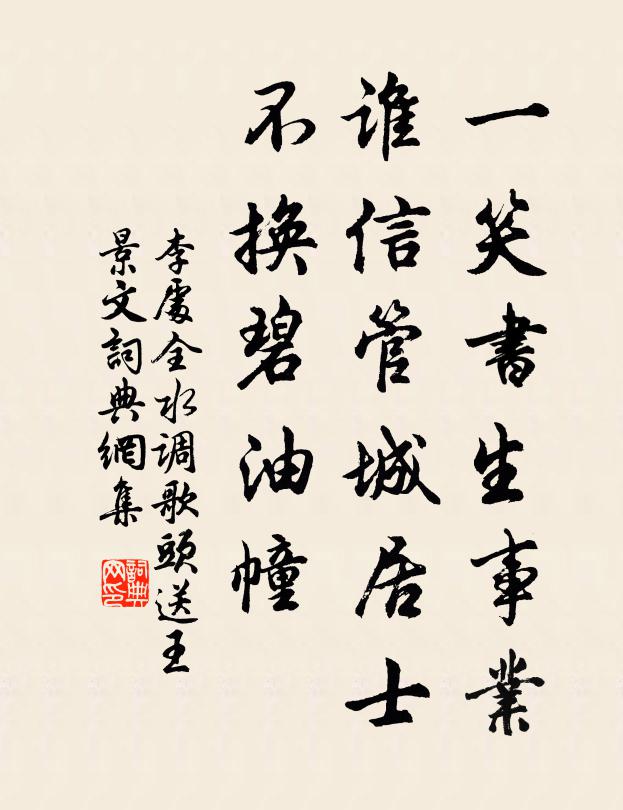 一笑書生事業
誰信管城居士
不換碧油幢
李處全水调歌頭送王
景文詞典網集
詞典
网印